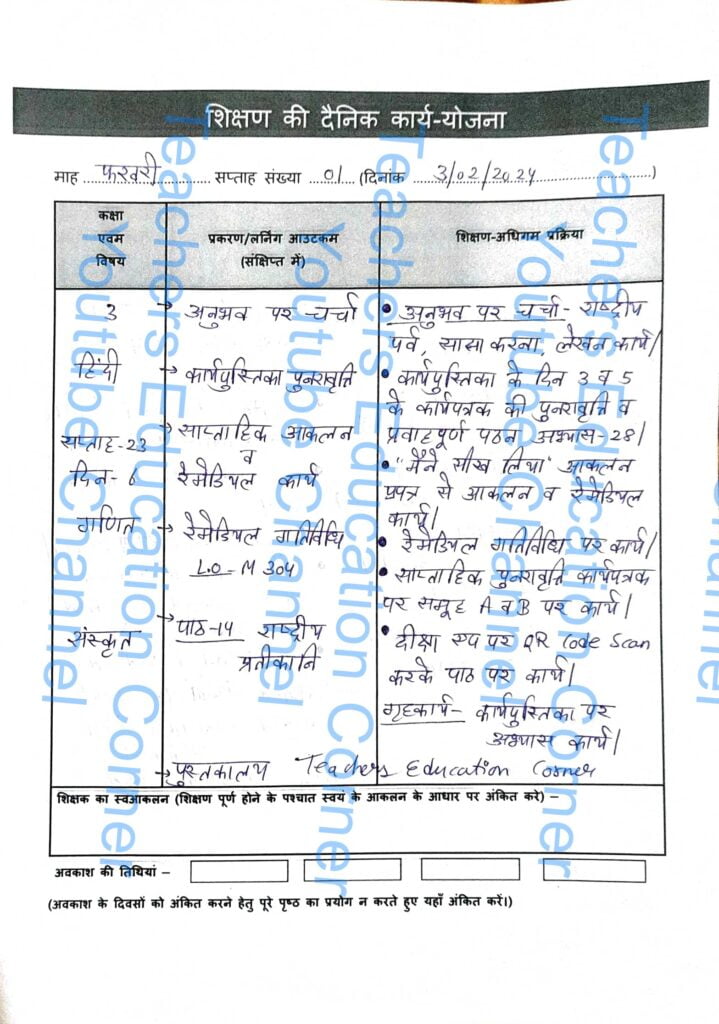 शिक्षण की दैनिक कार्य-योजना
माह फरवरी सप्ताह संख्या 01 (दिनांक 3/02/2024)
कक्षा
एवम
विषय
प्रकरण/लर्निंग आउटकम
(संक्षिप्त में)
शिक्षण-अधिगम प्रक्रिया
3
हिंदी
सप्ताह-23
दिन-6
गणित
संस्कृत
→ अनुभव पर चर्चा
→ कार्यपुस्तिका पुनरावृत्ति
→ साप्ताहिक आकलन
व
रेमेडियल कार्य
→ रेमेडियल गतिविधि
L.O-M 304
→ पाठ-14 राष्ट्रीय
प्रतीकानि
→ पुस्तकालय Teachers Education Corner
• अनुभव पर चर्चा- राष्ट्रीय
पर्व, साझा करना, लेखन कार्य|
• कार्यपुस्तिका के दिन 3 व 5
के कार्यपत्रक की पुनरावृत्ति व
प्रवाहपूर्ण पठन अभ्यास-28|
• "मैंने सीख लिया" आकलन
प्रपत्र से आकलन व रेमेडियल
कार्य|
• रेमेडियल गतिविधि पर कार्य|
• साप्ताहिक पुनरावृत्ति कार्यपत्रक
पर समूह A व B पर कार्य|
• दीक्षा एप पर QR Code Scan
करके पाठ पर कार्य|
गृहकार्य- कार्यपुस्तिका पर
अभ्यास कार्य|
शिक्षक का स्वआकलन (शिक्षण पूर्ण होने के पश्चात स्वयं के आकलन के आधार पर अंकित करे) –
अवकाश की तिथियां –
(अवकाश के दिवसों को अंकित करने हेतु पूरे पृष्ठ का प्रयोग न करते हुए यहाँ अंकित करें।)
Teachers Education Corner
Youtube Channel
Teachers Education Corner
Youtube Channel
Teachers Education Corner
Youtube Channel